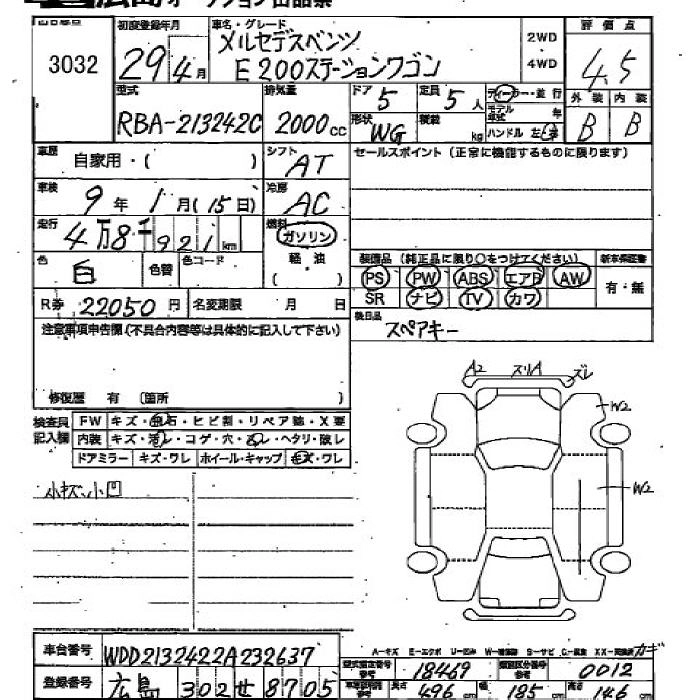 オークション出品票
3032
初度登録年月
29年4月
車名・グレード
メルセデスベンツ
E200ステーションワゴン
2WD
4WD
評価点
4.5
外装 内装
B B
型式
RBA-213242C
排気量
2000cc
ドア 5
形状 WG
定員 5人
積載 kg
ディーラー・並行
モデル年式 年
ハンドル 左
車歴 自家用・( )
シフト AT
セールスポイント(正常に機能するものに限ります)
車検 9年1月(15日)
冷房 AC
走行 4万8千921km
燃料 ガソリン
軽油
( )
色 白 色替 色コード
装備品(純正品に限り○をつけてください) 新車保証書
PS PW ABS エアB AW
SR ナビ TV カワ
有・無
R券 22050円 名変期限 月 日
後日品
スペアキー
注意事項申告欄(不具合内容等は具体的に記入して下さい)
修復歴 有 (箇所 )
検査員記入欄
FW キズ・飛石・ヒビ割・リペア跡・X要
内装 キズ・汚レ・コゲ・穴・ ・ヘタリ・破レ
ドアミラー キズ・ワレ ホイール・キャップ キズ・ワレ
小キズ、小凹
A2 スリA ズレ
W2
W2
車台番号 WDD2132422A232637
登録番号 広島 302 せ 8705
A-キズ E-エクボ U-凹み S-サビ
カギ
型式指定番号 18469 類別区分番号 0012
長さ 496cm 幅 185cm 高さ 146cm